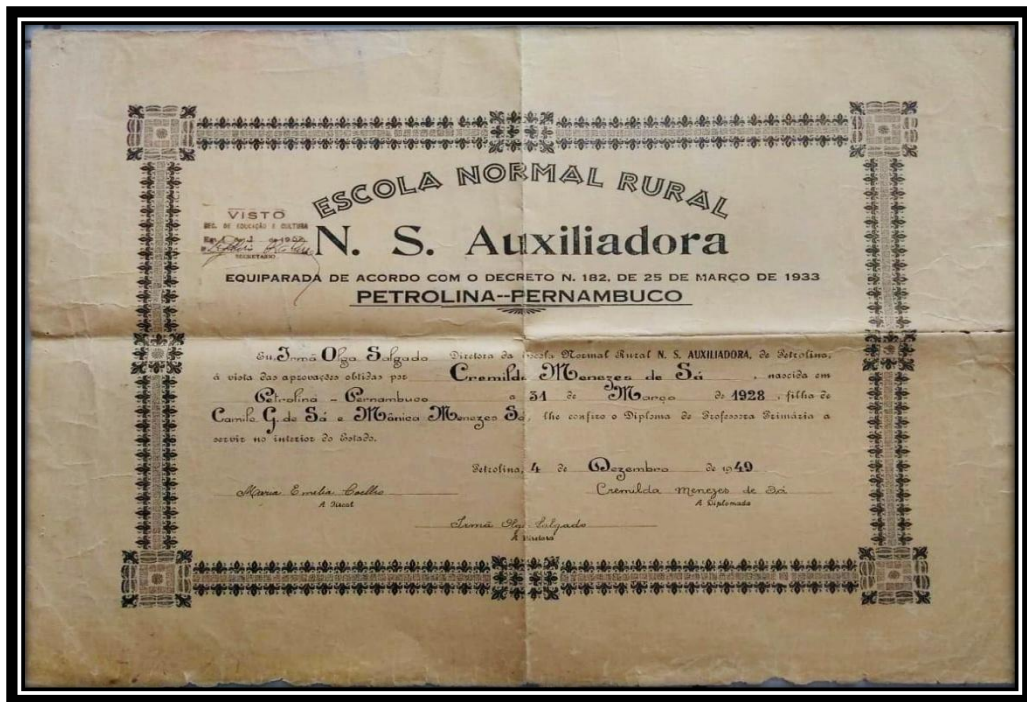 ESCOLA NORMAL RURAL
VISTO
SEC. DE EDUCAÇÃO E CULTURA
Em
SECRETARIO
N. S. Auxiliadora
EQUIPARADA DE ACORDO COM O DECRETO N. 182, DE 25 DE MARÇO DE 1933
PETROLINA--PERNAMBUCO
Eu, Irmã Olga Salgado Diretora da Escola Normal Rural N. S. AUXILIADORA, de Petrolina,
á vista das aprovações obtidas por Cremilda Menezes de Sá, nascida em
Petrolina - Pernambuco a 31 de Março de 1928, filha de
Camilo G. de Sá e Mônica Menezes Sá, lhe confiro o Diploma de Professora Primária a
servir no interior do Estado.
Petrolina, 4 de Dezembro de 1949
Maria Emelia Coelho
A Fiscal
Cremilda Menezes de Sá
A Diplomada
Irmã Olga Salgado
A Diretora